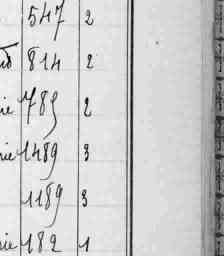 547 2
814 2
ie 789 2
ie 1489 3
1189 3
ie 182 1